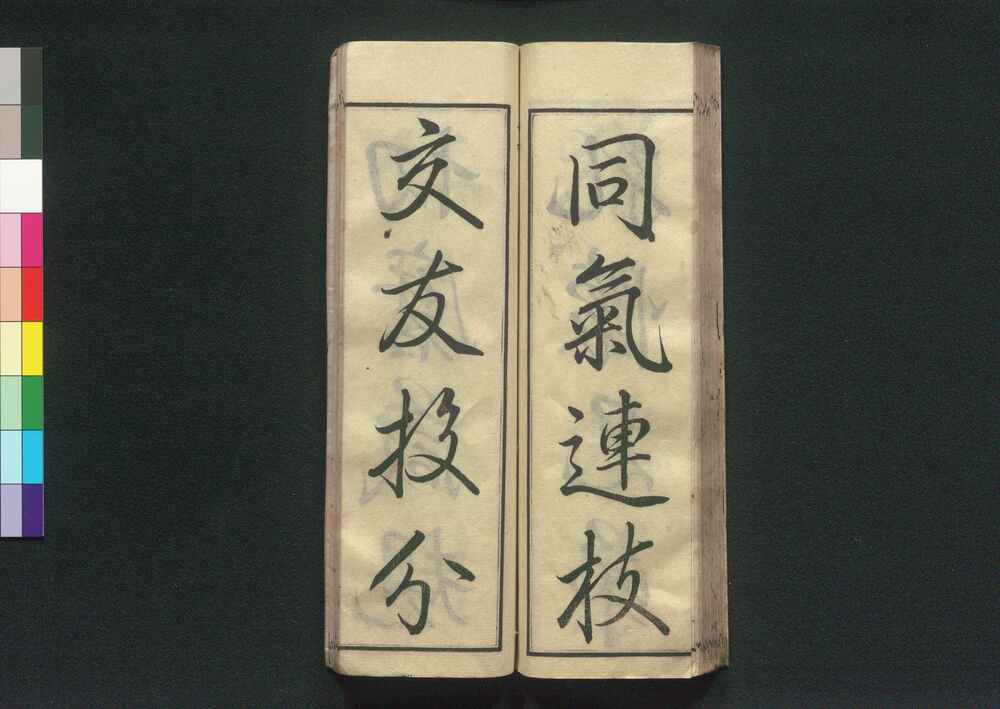 同氣連枝
交友投分